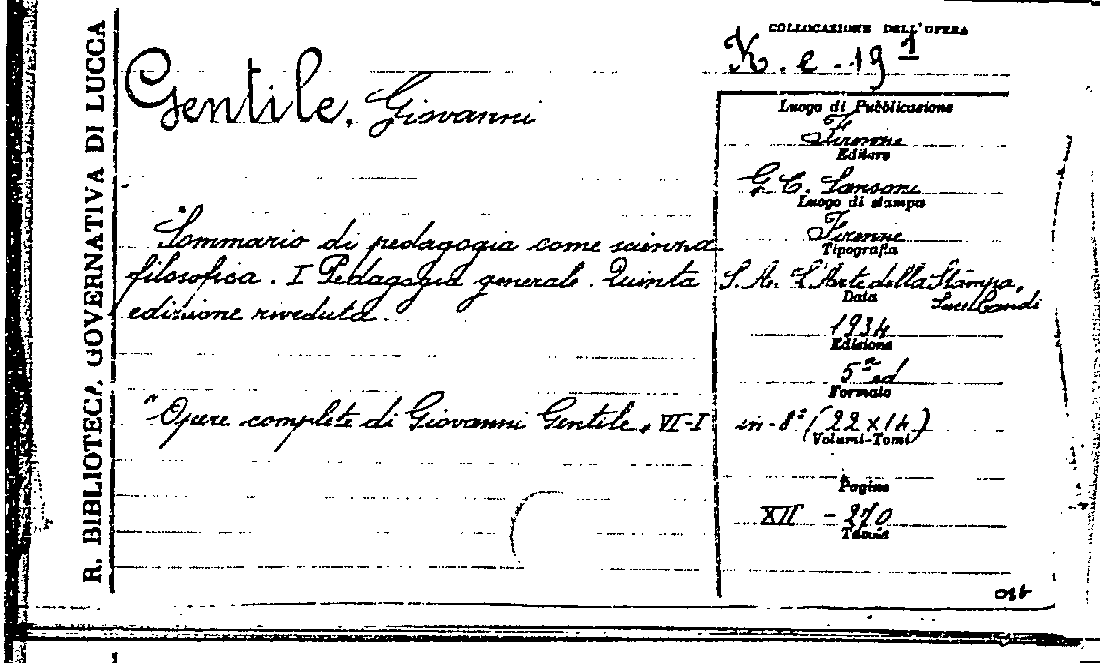 R. BIBLIOTECA GOVERNATIVA DI LUCCA
COLLOCAZIONE DELL'OPERA
K. e. 19 1
Gentile, Giovanni
Sommario di pedagogia come scienza
filosofica. I Pedagogia generale. Quinta
edizione riveduta.
"Opere complete di Giovanni Gentile, VI-I
Luogo di Pubblicazione
Firenze
Editore
G. C. Sansoni
Luogo di stampa
Firenze
Tipografia
S. A. L'Arte della Stampa,
Data
1934
Edizione
5ª ed
Formato
in-8° (22x14)
Volumi-Tomi
Pagine
XII - 270
Tavole